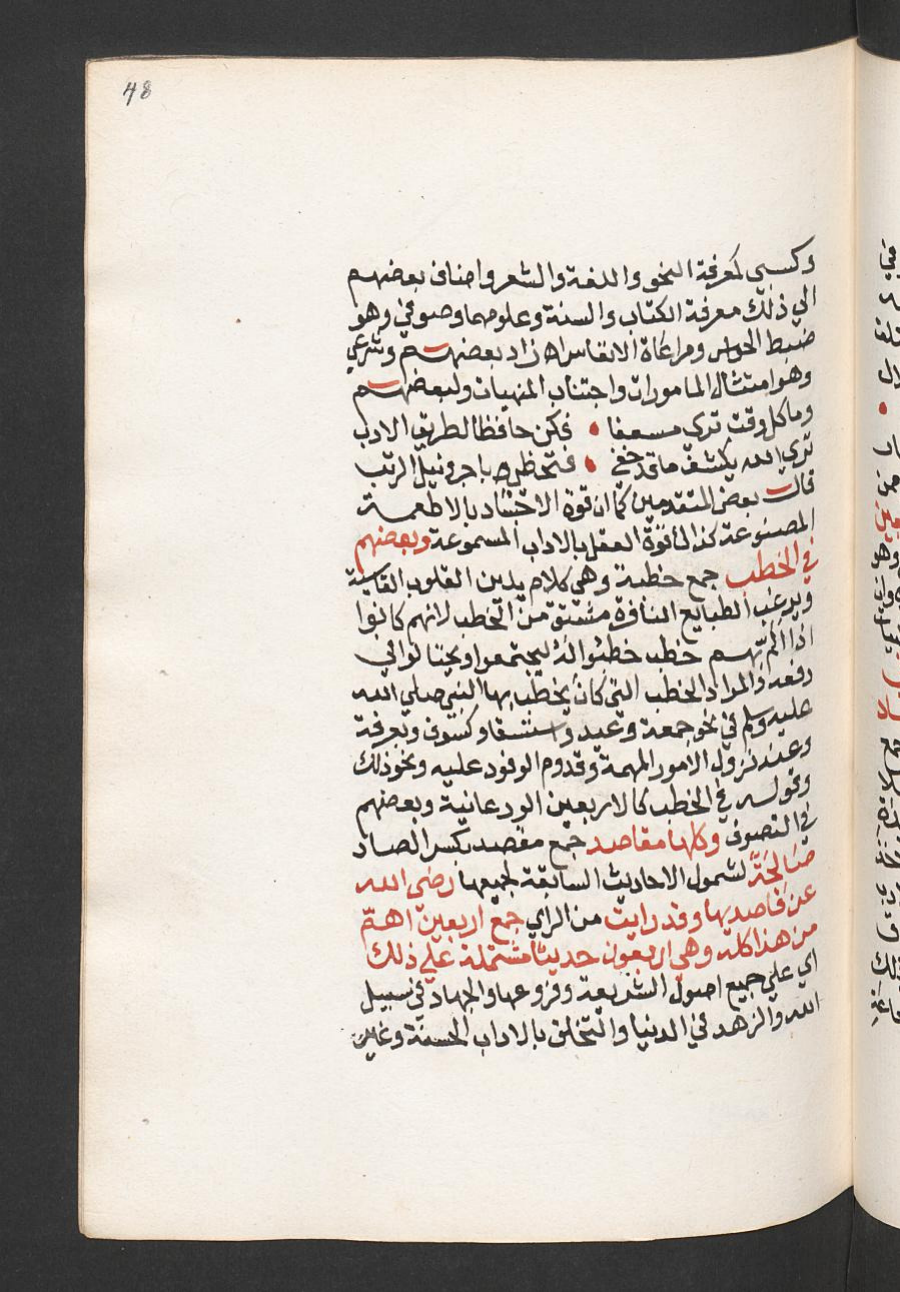 48
وكسبي كمعرفة النحو واللغة والشعر واضاف بعضهم
الي ذلك معرفة الكتاب والسنة وعلومهما وصوفي وهو
ضبط الحواس ومراعاة الانفاس اه زاد بعضهم وشرعي
وهو امتثال المامورات واجتناب المنهيات ولبعضهم
وما كل وقت تري مسعفا • فكن حافظا لطريق الادب
تري الله يكشف ما قد خفي • فتحظي باجر ونيل الرتب
قال بعض المتقدمين كما ان قوة الاجساد بالاطعمة
المصنوعة كذلك قوة العقل بالاداب المسموعة وبعضهم
في الخطب جمع خطبة وهي كلام يلين القلوب القاسية
ويرغب الطبايع النافرة مشتق من الخطب لانهم كانوا
اذا الم بهم خطب خطبوا له ليجتمعوا ويحتالوا في
دفعه والمراد الخطب التي كان يخطب بها النبي صلي الله
عليه وسلم في نحو جمعة وعيد واستسقا وكسوف وبعرفة
وعند نزول الامور المهمة وقدوم الوفود عليه ونحو ذلك
وقوله في الخطب كالاربعين الودعانية وبعضهم
في التصوف وكلها مقاصد جمع مقصد بكسر الصاد
صالحة لشمول الاحاديث السابقة لجميعها رضي الله
عن قاصديها وقد رايت من الراي جمع اربعين اهم
من هذا كله وهي اربعون حديثا مشتملة علي ذلك
اي علي جميع اصول الشريعة وفروعها والجهاد في سبيل
الله والزهد في الدنيا والتخلق بالاداب الحسنة وغير